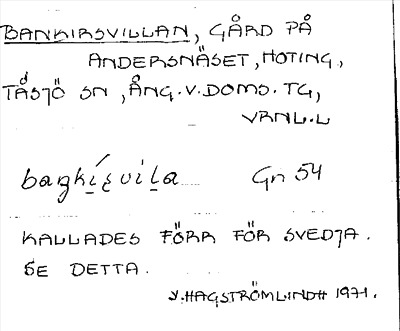 BANKIRSVILLAN, GÅRD PÅ
ANDERSNÄSET, HOTING,
TÅSJÖ SN, ÅNG. V. DOMS. TG,
VRNL. L
Gn 54
KALLADES FÖRR FÖR SVEDJA.
SE DETTA.
V. HAGSTRÖMLINDH 1971.